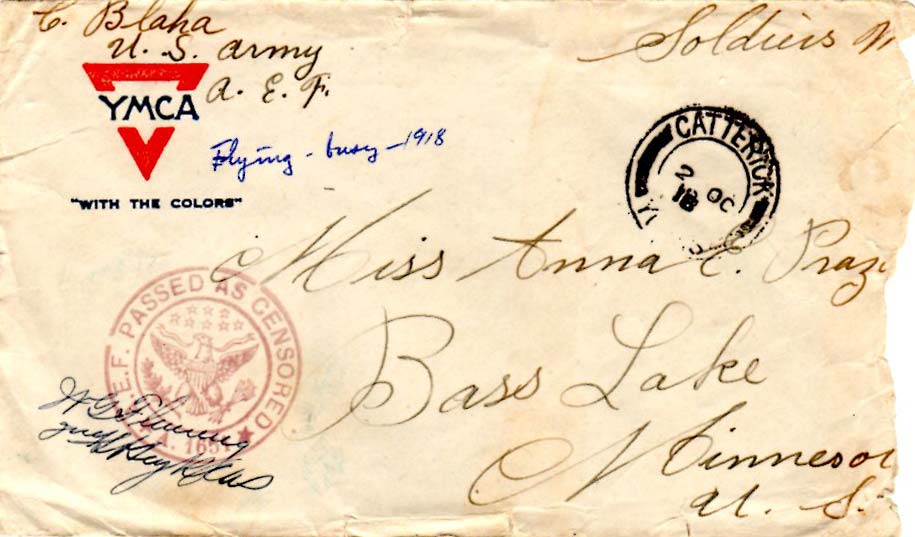 C. Blaha
U. S. army
A. E. F.
Soldiers M
YMCA
"WITH THE COLORS"
Flying - busy - 1918
CATTERICK
2 OC
18
Miss Anna C. Praz
Bass Lake
Minnesot
U. S.
A.E.F. PASSED AS CENSORED
A. 165